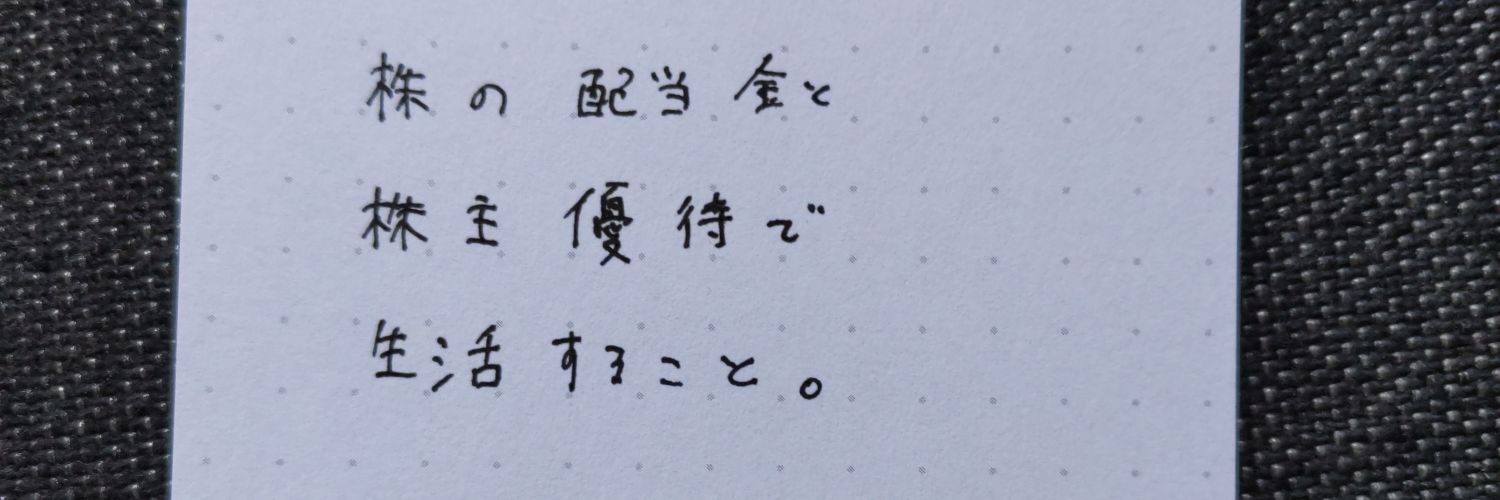 株の配当金と
株主優待で
生活すること。